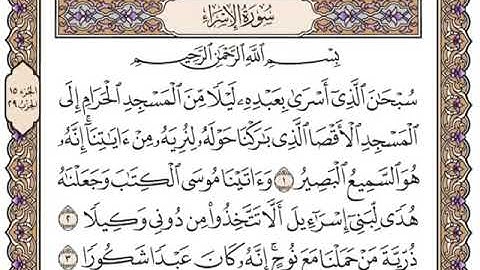 سُورَةُ الإِسْرَاءِ
الجزء ١٥
الحزب ٢٩
بِسْمِ ٱللَّهِ ٱلرَّحْمَٰنِ ٱلرَّحِيمِ
سُبْحَٰنَ ٱلَّذِىٓ أَسْرَىٰ بِعَبْدِهِۦ لَيْلًا مِّنَ ٱلْمَسْجِدِ ٱلْحَرَامِ إِلَى
ٱلْمَسْجِدِ ٱلْأَقْصَا ٱلَّذِى بَٰرَكْنَا حَوْلَهُۥ لِنُرِيَهُۥ مِنْ ءَايَٰتِنَآ ۚ إِنَّهُۥ
هُوَ ٱلسَّمِيعُ ٱلْبَصِيرُ ١ وَءَاتَيْنَا مُوسَى ٱلْكِتَٰبَ وَجَعَلْنَٰهُ
هُدًى لِّبَنِىٓ إِسْرَٰٓءِيلَ أَلَّا تَتَّخِذُوا۟ مِن دُونِى وَكِيلًا ٢
ذُرِّيَّةَ مَنْ حَمَلْنَا مَعَ نُوحٍ ۚ إِنَّهُۥ كَانَ عَبْدًا شَكُورًا ٣